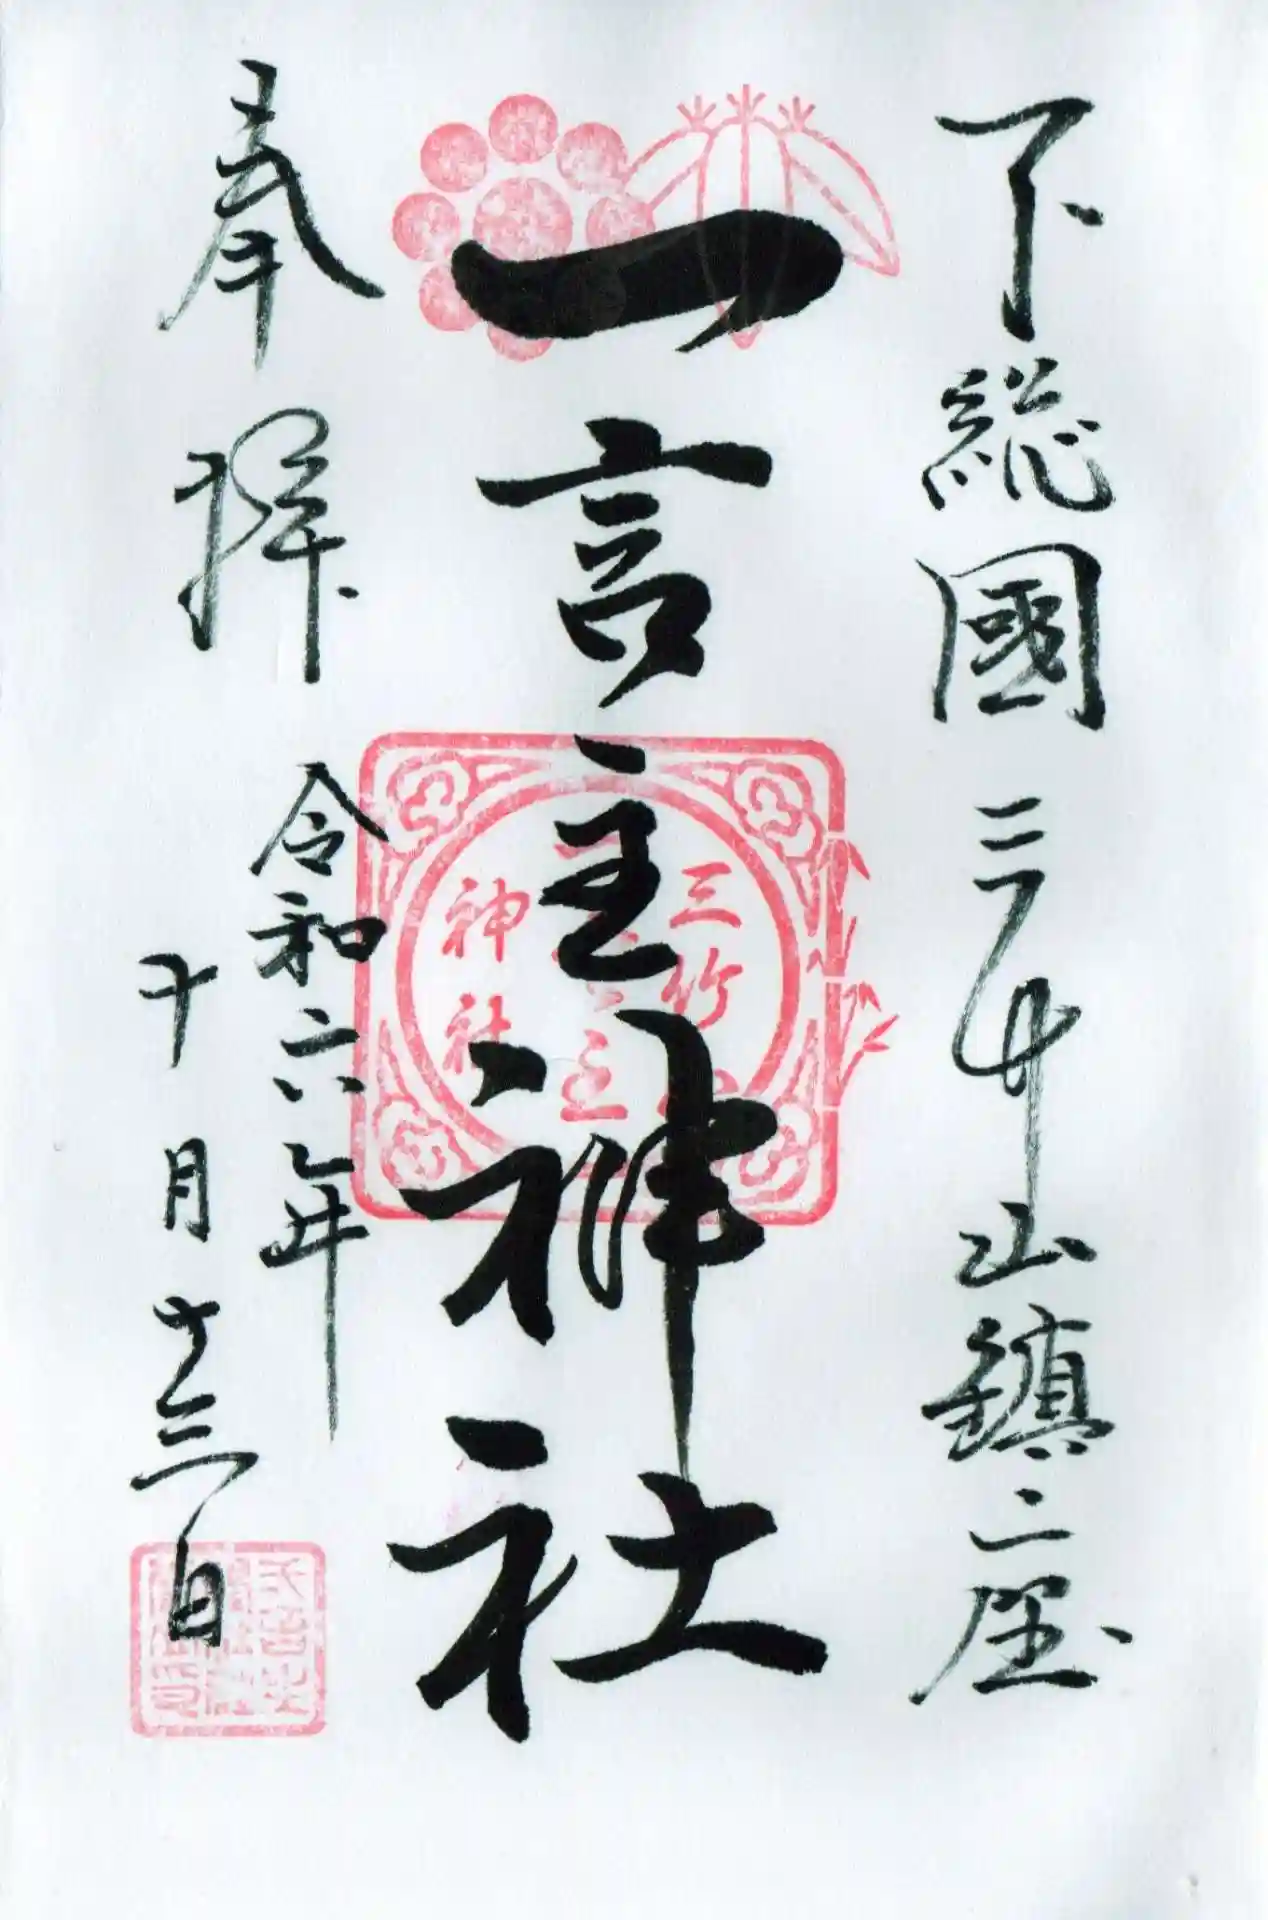 下総國三竹山鎮二座
一言主神社
三竹山
一言主
神社
奉拝
令和六年
十月十三日